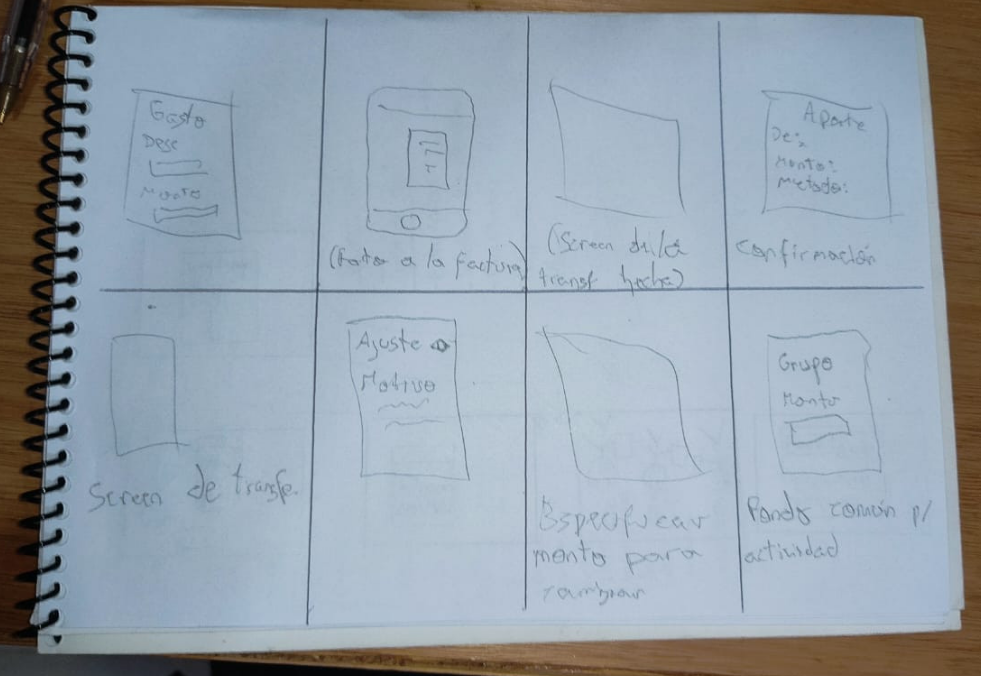 Gasto
Desc
Monto
(Foto a la factura)
(Screen de la
transf hecha)
Aporte
De:
Monto:
Metodo:
Confirmación
Screen de transfe.
Ajuste
Motivo
Especificar
monto para
cambiar
Grupo
Monto
Fondo común p/
actividad